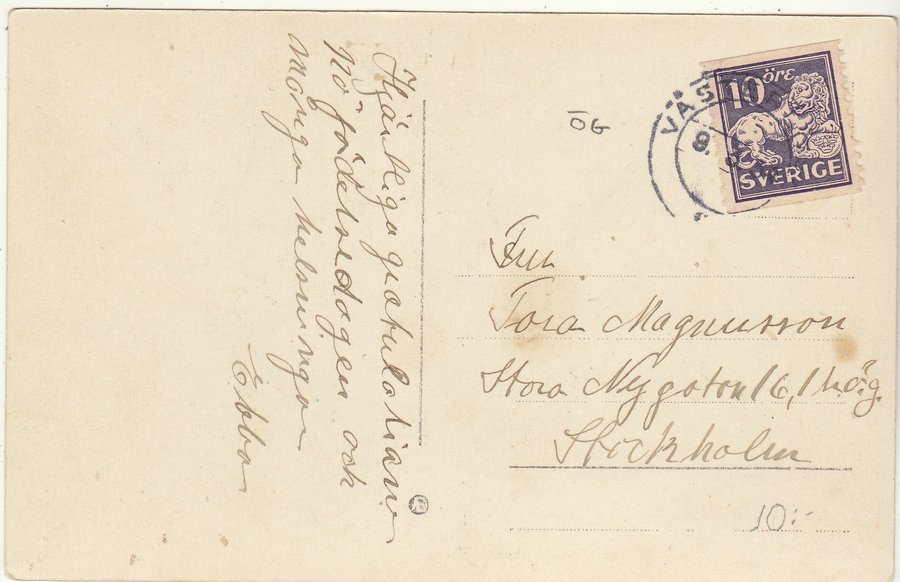 Hjärtliga gratulationer
på födelsedagen och
många helsningar
Ebba
ÖG
VÄST
9.
10 öre
SVERIGE
Fru
Tora Magnusson
Stora Nygatan 16, 1 hög.
Stockholm
10:-